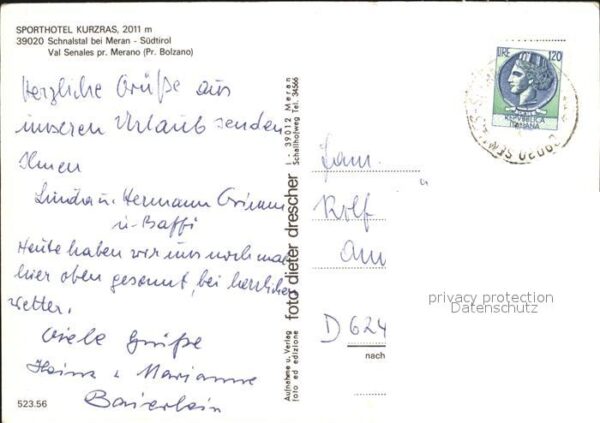 SPORTHOTEL KURZRAS, 2011 m
39020 Schnalstal bei Meran - Südtirol
Val Senales pr. Merano (Pr. Bolzano)
Herzliche Grüße aus
unseren Urlaub senden
Ihnen
Linda u. Hermann
u. Baffi
Heute haben wir uns noch mal
hier oben gesonnt, bei herrlichen
Wetter.
Viele Grüße
Heinz u. Marianne
Baierlein
523.56
Aufnahme u. Verlag
foto ed edizione
foto dieter drescher
I - 39012 Meran
Schallhofweg Tel. 34566
LIRE 120
REPVBBLICA
ITALIANA
39020 SEN
Fam.
Rolf
Am
D 624
nach
privacy protection
Datenschutz